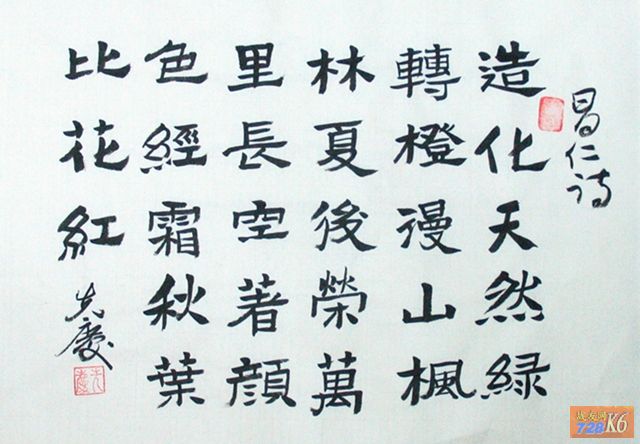 昌仁诗
造化天然緑
轉橙漫山楓
林夏後榮萬
里長空著顔
色經霜秋葉
比花紅
先慶
战友网
728K6